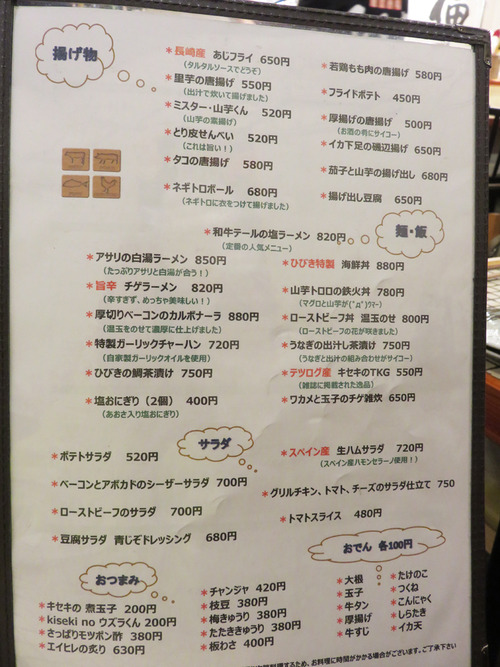 揚げ物
*長崎産 あじフライ 650円
(タルタルソースでどうぞ)
*里芋の唐揚げ 550円
(出汁で炊いて揚げました)
*ミスター・山芋くん 520円
(山芋の素揚げ)
*とり皮せんべい 520円
(これは旨い!)
*タコの唐揚げ 580円
*ネギトロボール 680円
(ネギトロに衣をつけて揚げました)
*若鶏もも肉の唐揚げ 580円
*フライドポテト 450円
*厚揚げの唐揚げ 500円
(お酒の肴にサイコー)
*イカ下足の磯辺揚げ 650円
*茄子と山芋の揚げ出し 680円
*揚げ出し豆腐 650円
麺・飯
*和牛テールの塩ラーメン 820円
(定番の人気メニュー)
*アサリの白湯ラーメン 850円
(たっぷりアサリと白湯が合う!)
*旨辛 チゲラーメン 820円
(辛すぎず、めっちゃ美味しい!)
*厚切りベーコンのカルボナーラ 880円
(温玉をのせて濃厚に仕上げました)
*特製ガーリックチャーハン 720円
(自家製ガーリックオイルを使用)
*ひびきの鯛茶漬け 750円
*塩おにぎり(2個) 400円
(あおさ入り塩おにぎり)
*ひびき特製 海鮮丼 880円
*山芋トロロの鉄火丼 780円
(マグロと山芋が(ﾟдﾟ)ｳﾏｰ)
*ローストビーフ丼 温玉のせ 800円
(ローストビーフの花が咲きました)
*うなぎの出汁し茶漬け 750円
(うなぎと出汁の組み合わせがサイコー)
*テツログ産 キセキのTKG 550円
(雑誌に掲載された逸品)
*ワカメと玉子のチゲ雑炊 650円
サラダ
*ポテトサラダ 520円
*ベーコンとアボカドのシーザーサラダ 700円
*ローストビーフのサラダ 700円
*豆腐サラダ 青じぞドレッシング 680円
*スペイン産 生ハムサラダ 720円
(スペイン産ハモンセラーノ使用!)
*グリルチキン、トマト、チーズのサラダ仕立て 750
*トマトスライス 480円
おつまみ
*キセキの 煮玉子 200円
*kiseki no ウズラくん 200円
*さっぱりモツポン酢 380円
*エイヒレの炙り 630円
*チャンジャ 420円
*枝豆 380円
*梅きゅうり 380円
*たたききゅうり 380円
*板わさ 400円
おでん 各100円
*大根
*玉子
*牛タン
*厚揚げ
*牛すじ
*たけのこ
*つくね
*こんにゃく
*しらたき
*イカ天
するため、お料理に時間がかかる場合がございます。ご了承下さい